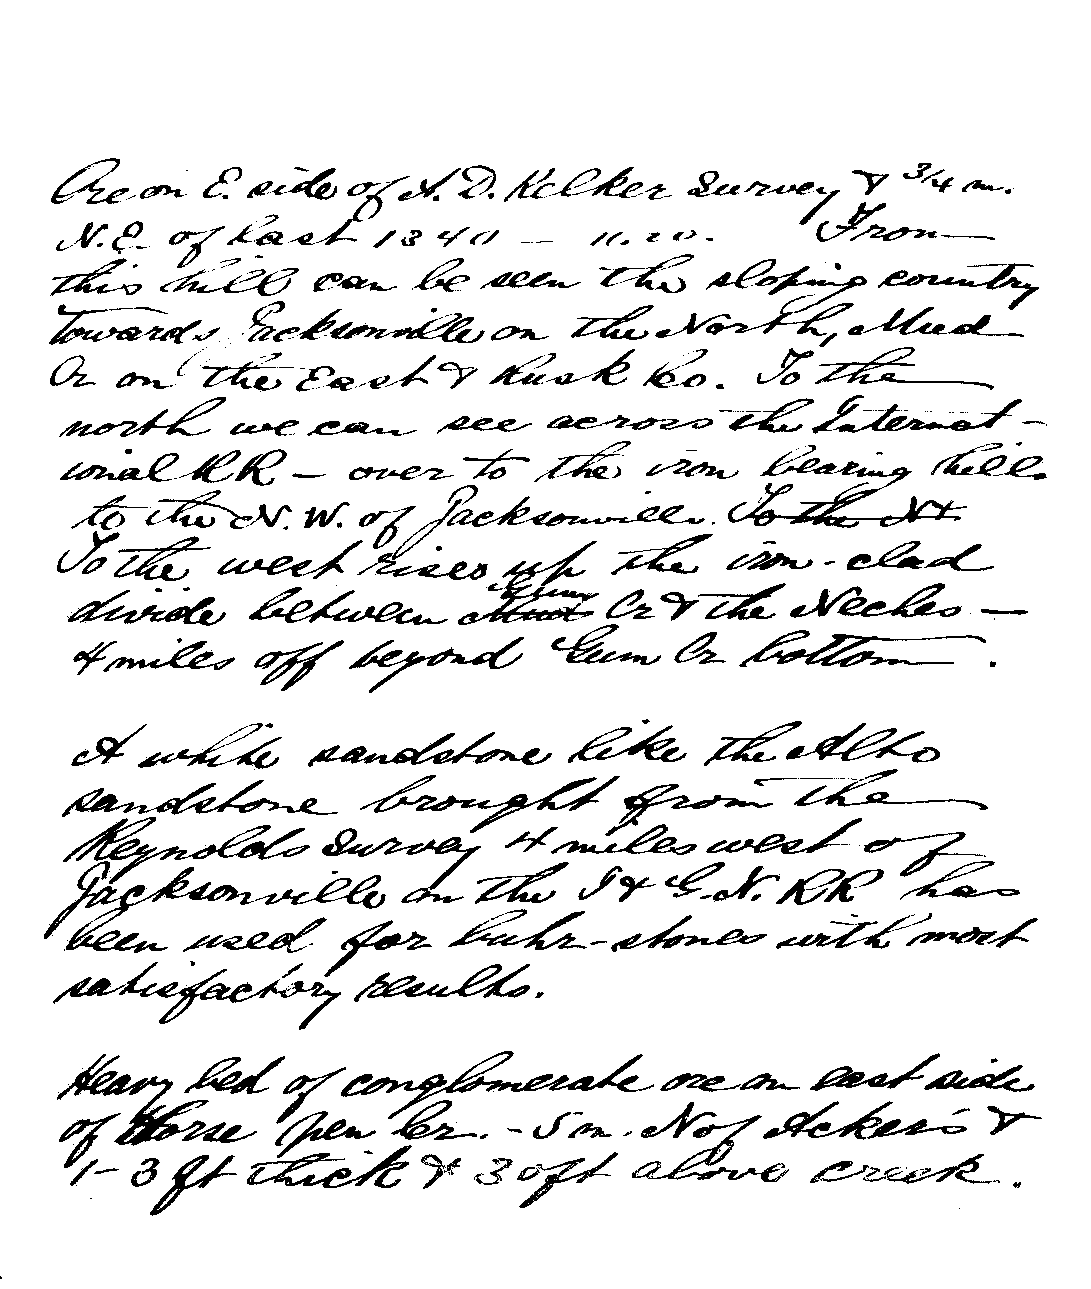 Ore on E. side of A. D. Kelker Survey & 3/4 m.
N.E. of last 1340 — 11.20. From
this hill can be seen the sloping country
towards Jacksonville on the North, Mud
Cr on the East & Rusk Co. To the
north we can see across the Internat-
ional RR — over to the iron bearing hills
to the N.W. of Jacksonville. To the N &
To the west rises up the iron-clad
divide between Mud Gum Cr & the Neches —
4 miles off beyond Gum Cr bottom.
A white sandstone like the Alto
sandstone brought from the
Reynolds Survey 4 miles west of
Jacksonville on the I & G.N. RR has
been used for buhr-stones with most
satisfactory results.
Heavy bed of conglomerate ore on east side
of Horse pen Cr. - 5 m. N of Ackers &
1-3 ft thick & 30 ft above creek.